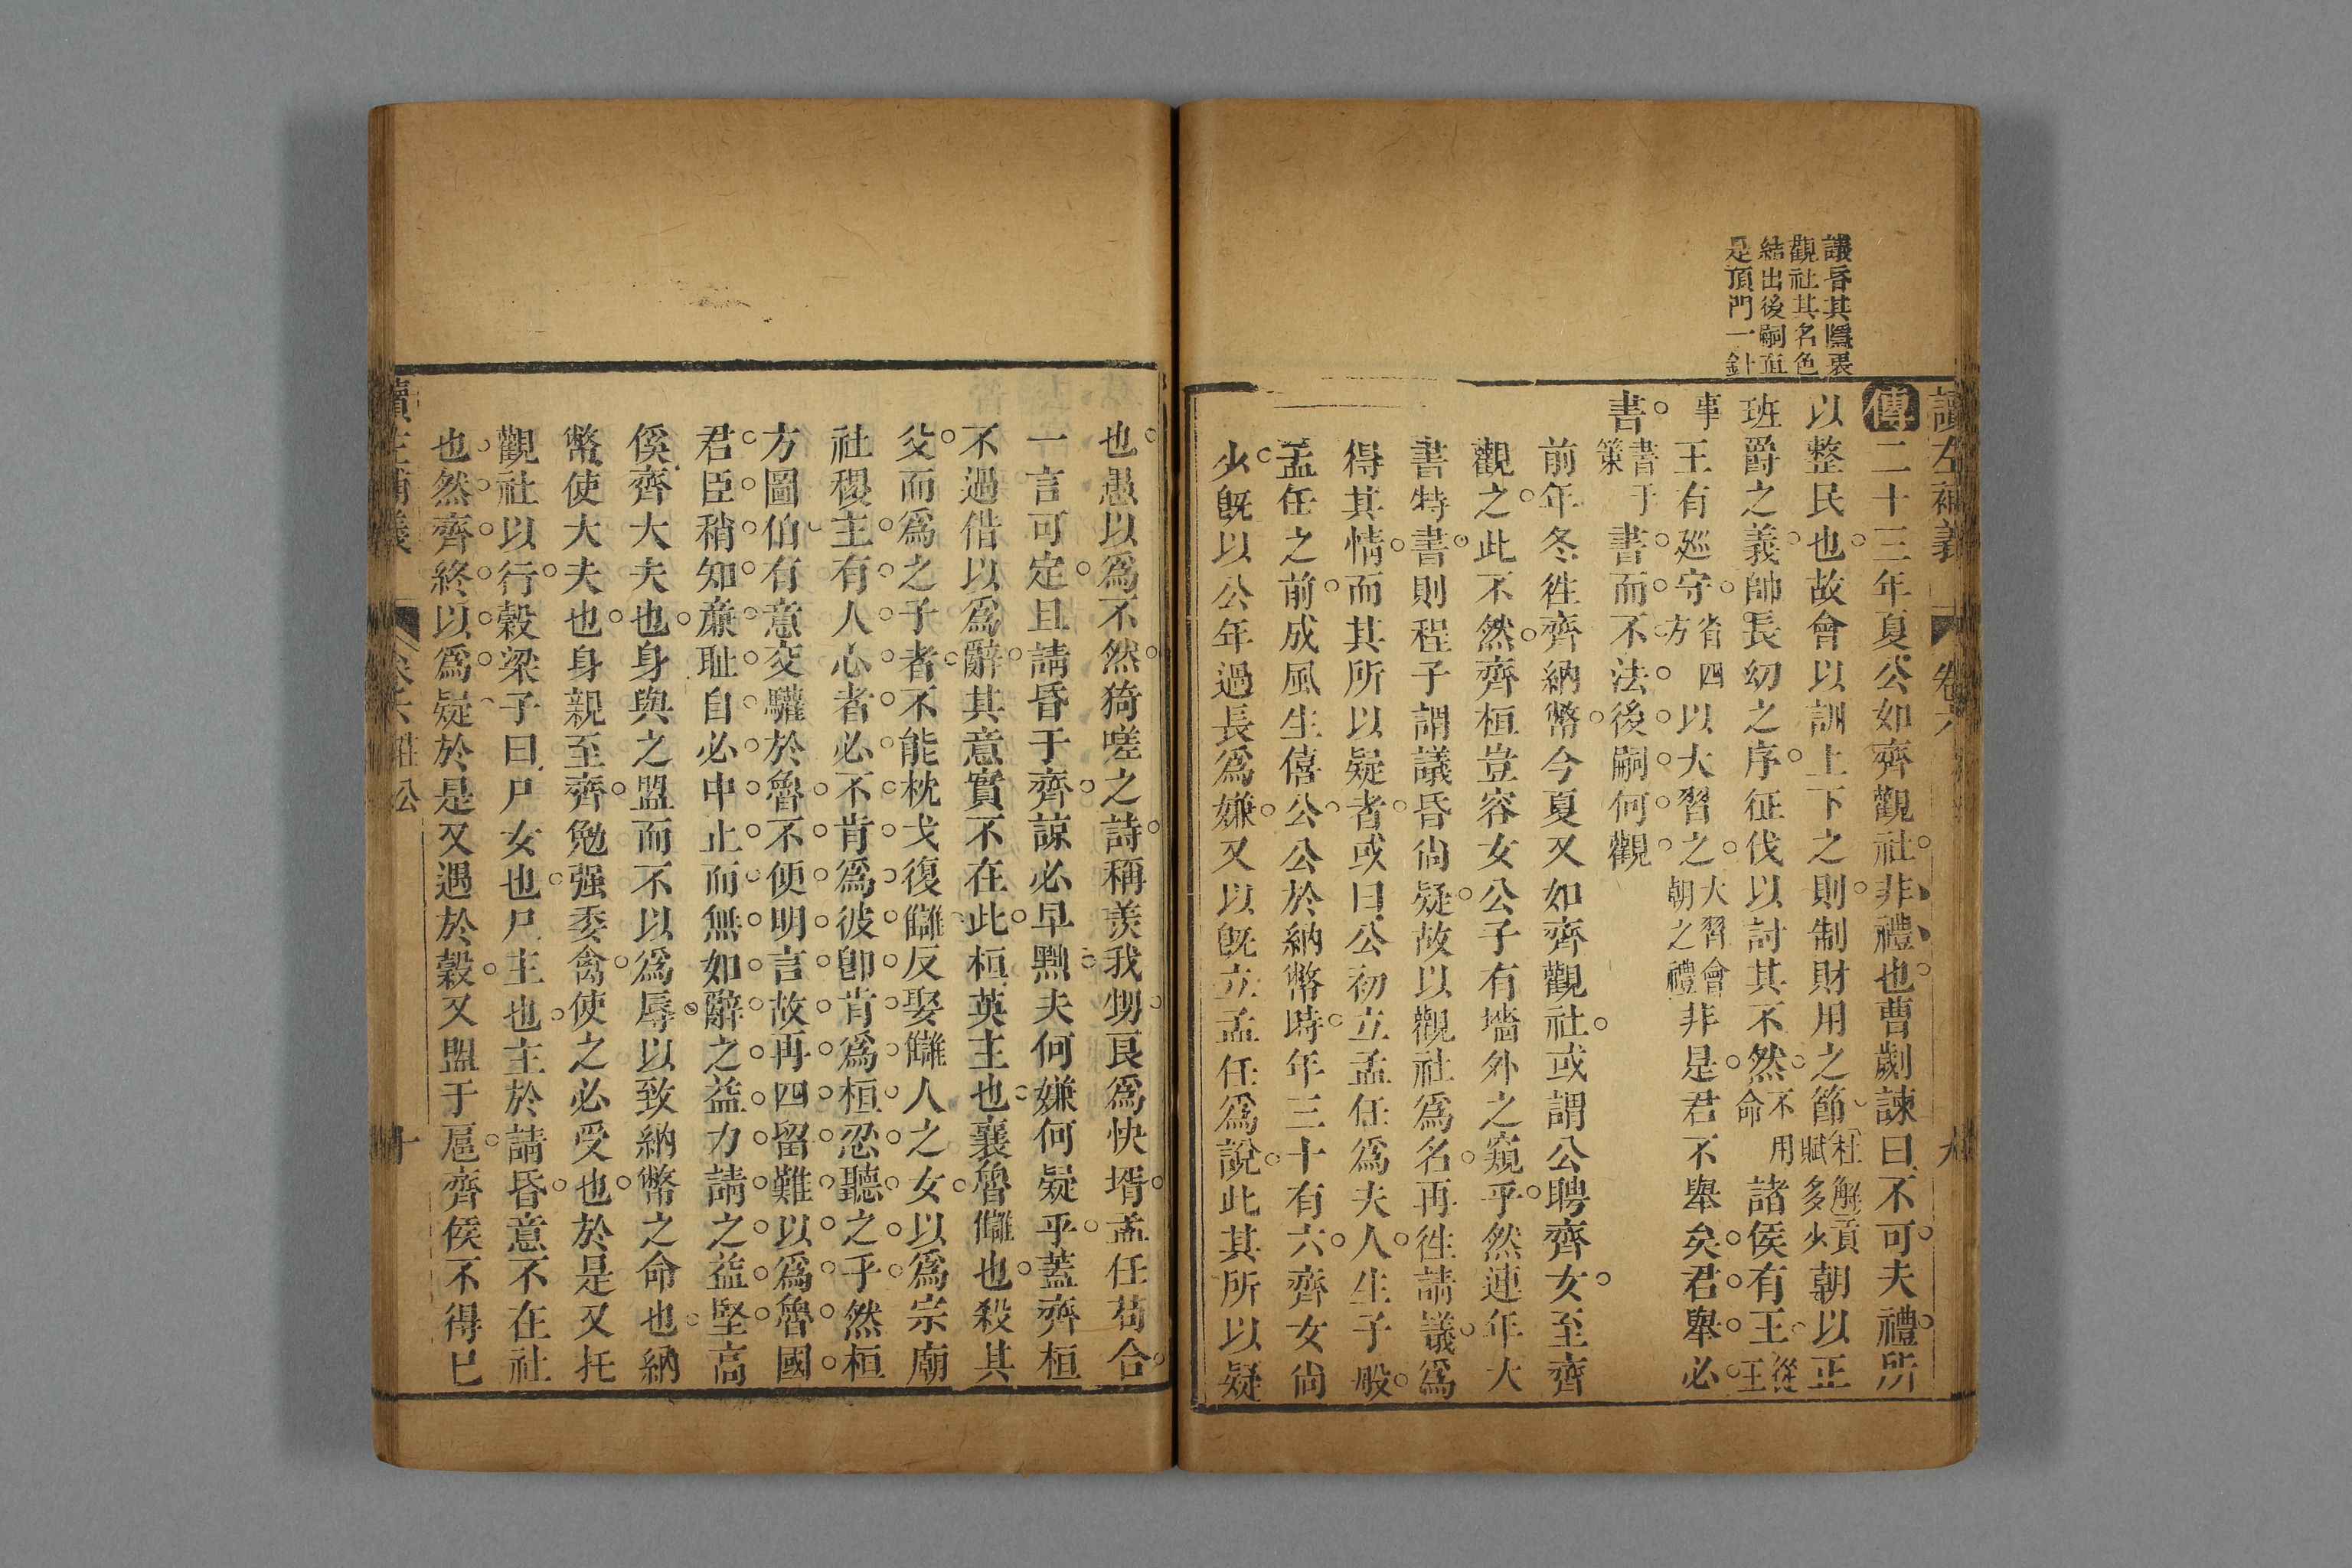 讀左補義
卷六
九
議昏其隱衷
觀社其名色
結出後嗣直
是頂門一針
傳二十三年夏公如齊觀社非禮也曹劌諫曰不可夫禮所
以整民也故會以訓上下之則制財用之節杜解貢賦多少朝以正
班爵之義帥長幼之序征伐以討其不然不用命諸侯有王從王
事王有廵守省四方以大習之大習會朝之禮非是君不舉矣君舉必
書書于策書而不法後嗣何觀
前年冬徃齊納幣今夏又如齊觀社或謂公聘齊女至齊
觀之此不然齊桓豈容女公子有墻外之窺乎然連年大
書特書則程子謂議昏尙疑故以觀社爲名再徃請議爲
得其情而其所以疑者或曰公初立孟任爲夫人生子般
孟任之前成風生僖公公於納幣時年三十有六齊女尙
少旣以公年過長爲嫌又以旣立孟任爲說此其所以疑
也愚以爲不然猗嗟之詩稱羨我甥良爲快壻孟任苟合
一言可定且請昏于齊諒必早黜夫何嫌何疑乎蓋齊桓
不過借以爲辭其意實不在此桓英主也襄魯讎也殺其
父而爲之子者不能枕戈復讎反娶讎人之女以爲宗廟
社稷主有人心者必不肯爲彼卽肯爲桓忍聽之乎然桓
方圖伯有意交驩於魯不便明言故再四留難以爲魯國
君臣稍知廉耻自必中止而無如辭之益力請之益堅高
傒齊大夫也身與之盟而不以爲辱以致納幣之命也納
幣使大夫也身親至齊勉强委禽使之必受也於是又托
觀社以行穀梁子曰尸女也尸主也主於請昏意不在社
也然齊終以爲疑於是又遇於穀又盟于扈齊侯不得已
讀左補義
卷六 莊公
十